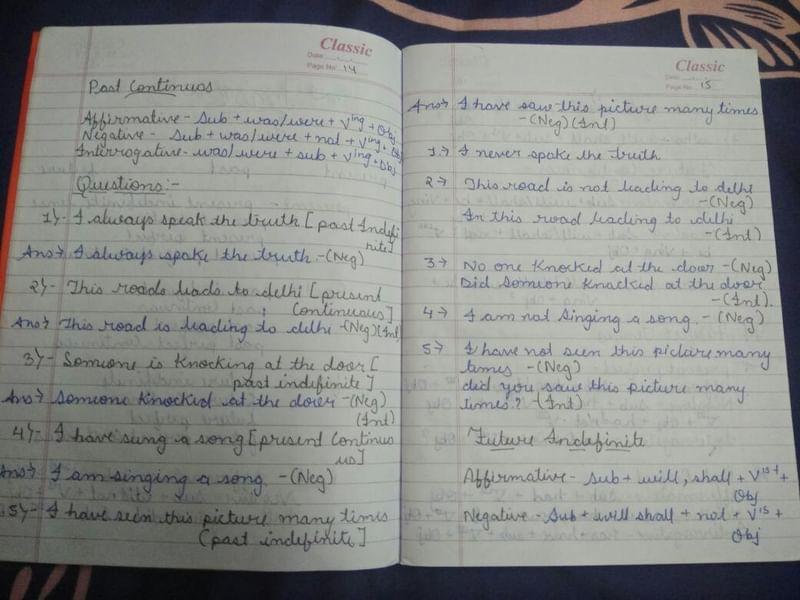 Classic
Date
Page No. 14
Past Continuos
Affirmative - Sub + was/were + V ing + Obj
Negative - Sub + was/were + not + V ing + Obj
Interrogative - was/were + sub + V ing + Obj
Questions :-
1)- I always speak the truth [ past Indefi
nite]
Ans→ I always spoke the truth -(Neg)
2)- This roads leads to delhi [present
Continuous]
Ans→ This road is leading to delhi -(Neg)(Int)
3)- Someone is knocking at the door [
past indefinite ]
Ans→ Someone knocked at the door -(Neg)
(Int)
4)- I have sung a song [present Continuo
us]
Ans→ I am singing a song. -(Neg)
5)- I have seen this picture many times
(past indefinite]
Classic
Date
Page No. 15
Ans→ I have saw this picture many times
-(Neg)(Int)
1→ I never spoke the truth
2→ This road is not leading to delhi
-(Neg)
In this road leading to delhi
-(Int)
3→ No one Knocked at the door -(Neg)
Did someone Knocked at the door
-(Int).
4→ I am not singing a song. -(Neg)
5→ I have not seen this picture many
times -(Neg)
did you saw this picture many
times? -(Int)
Future Indefinite
Affirmative - sub + will, shall + V 1st +
Obj
Negative - Sub + will shall + not + V 1st +
Obj